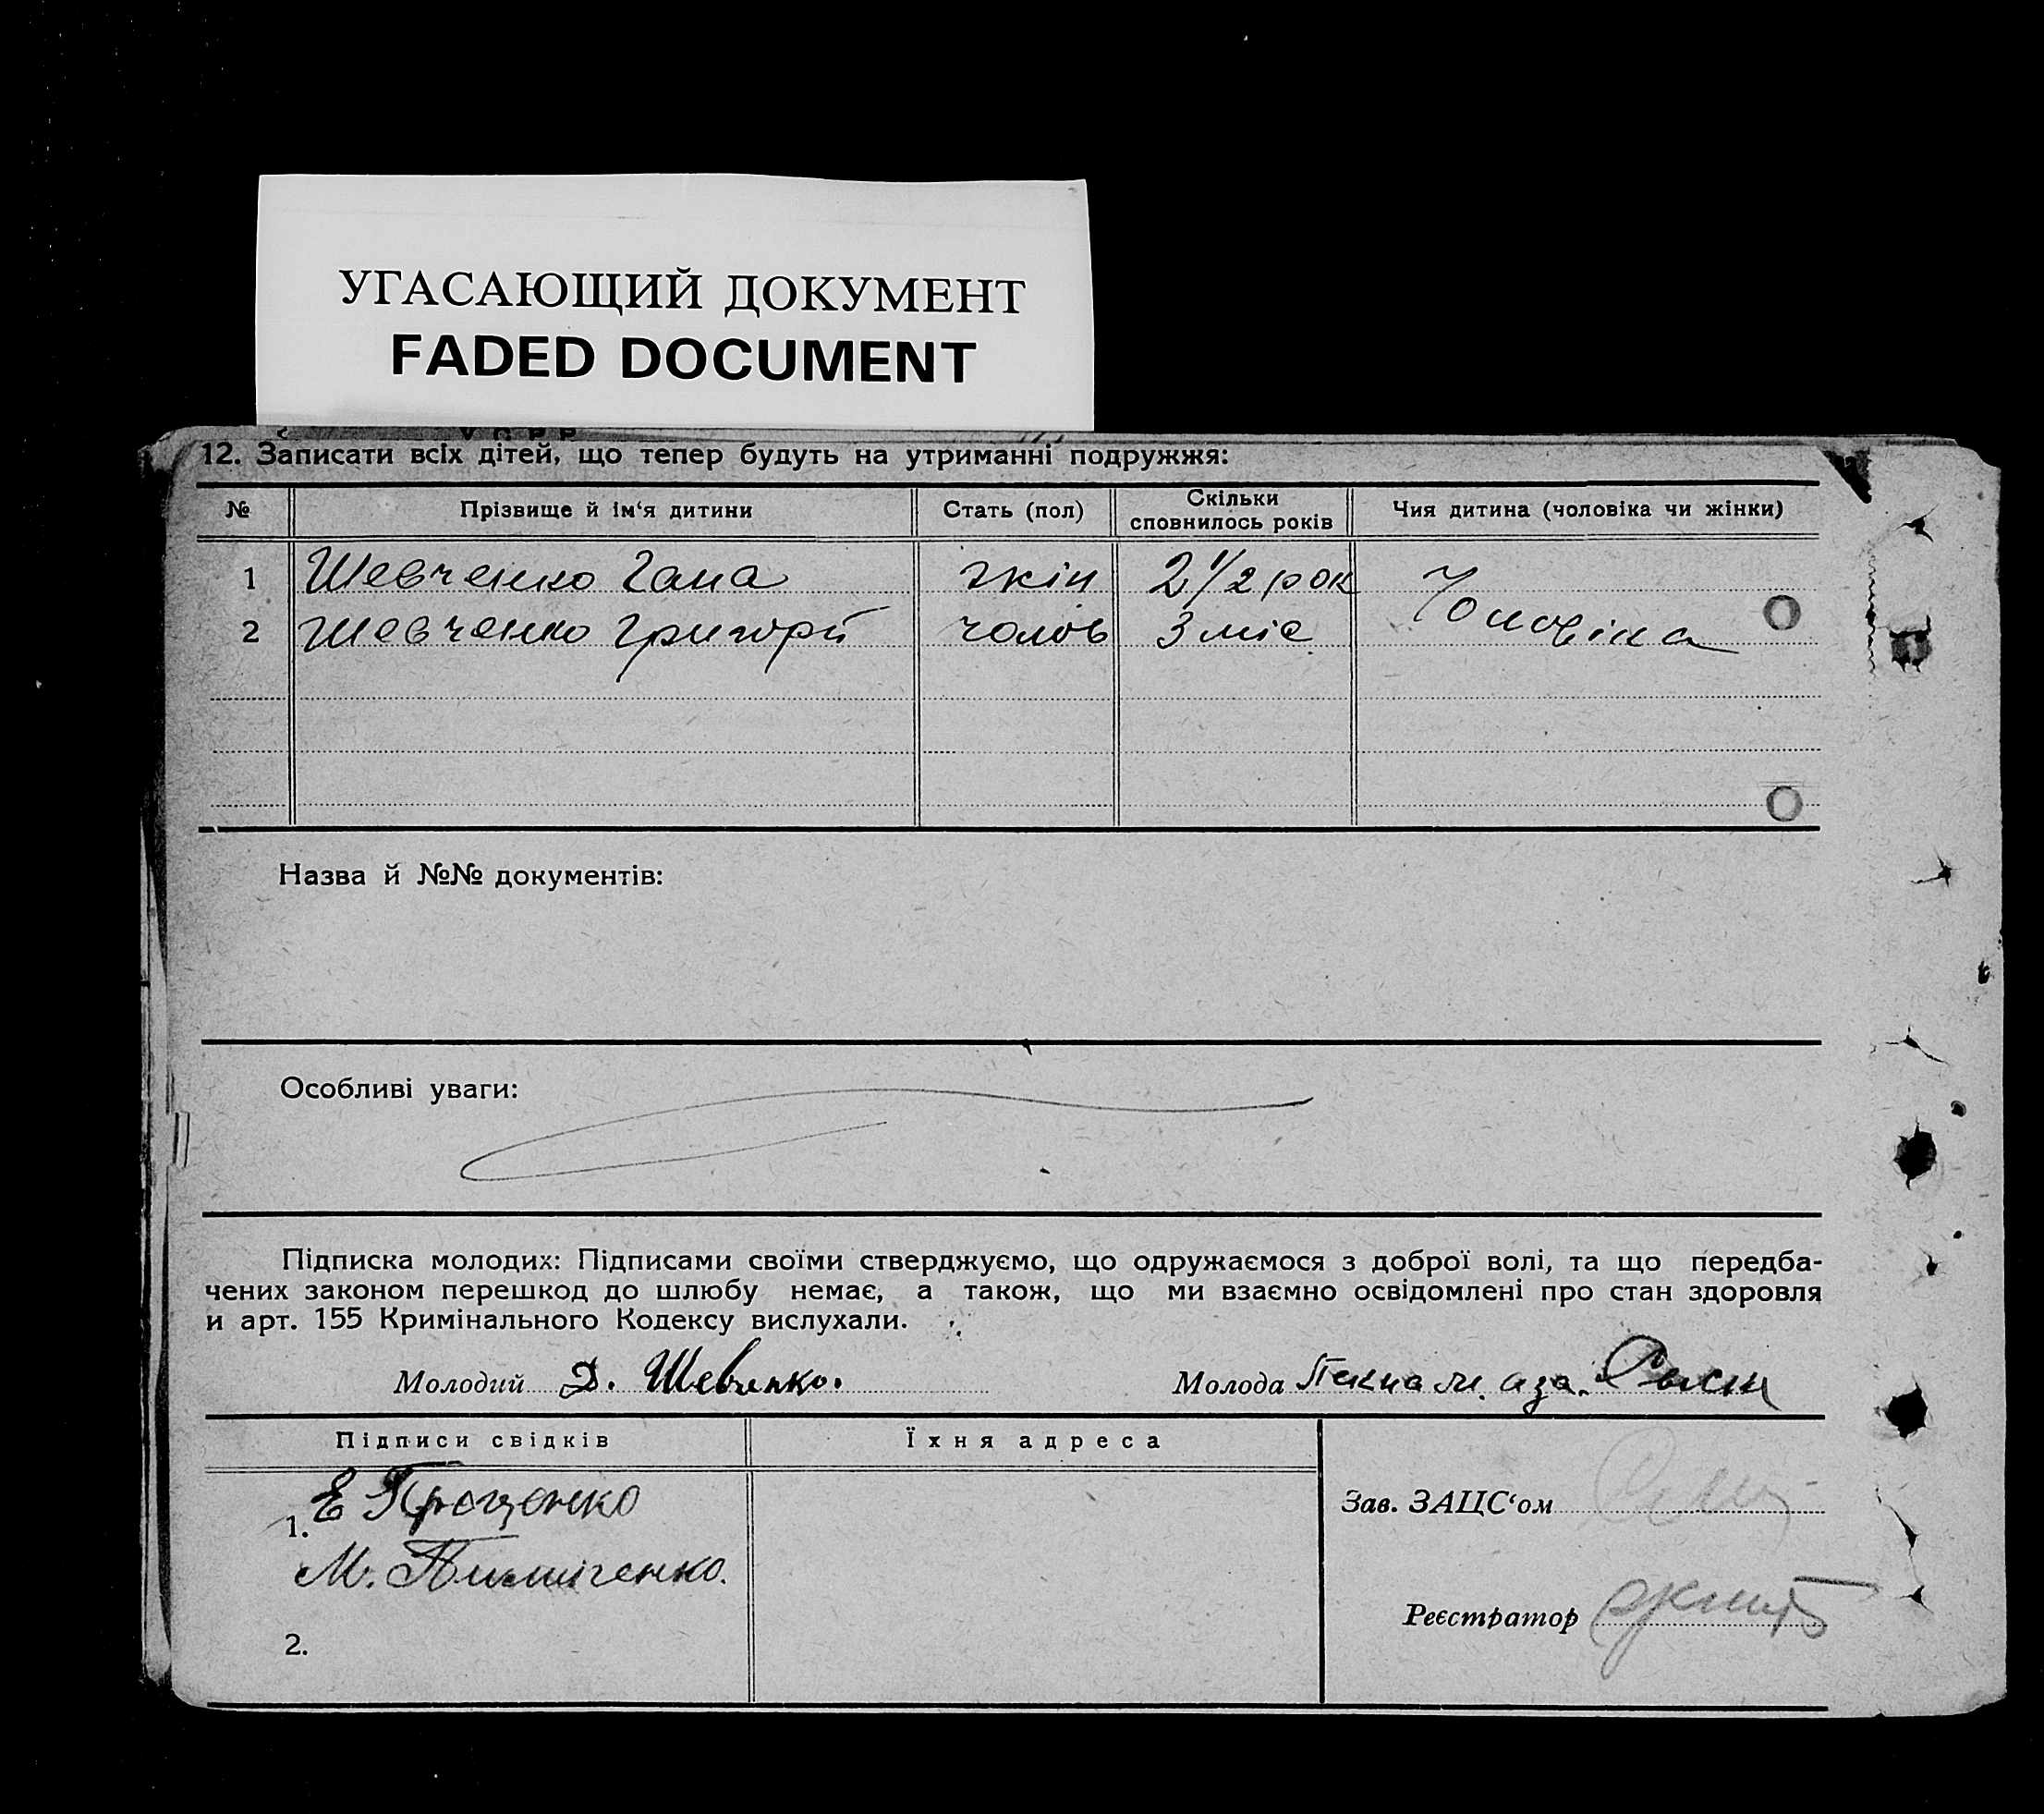 УГАСАЮЩИЙ ДОКУМЕНТ
FADED DOCUMENT
12. Записати всіх дітей, що тепер будуть на утриманні подружжя:
№ Прізвище й ім‘я дитини Стать (пол) Скільки сповнилось років Чия дитина (чоловіка чи жінки)
1 Шевченко Гана жін 2 1/2 рок Чоловіка
2 Шевченко Григорій чолов 3 міс
Назва й №№ документів:
Особливі уваги:
Підписка молодих: Підписами своїми стверджуємо, що одружаємося з доброї волі, та що передба-
чених законом перешкод до шлюбу немає, а також, що ми взаємно освідомлені про стан здоровля
и арт. 155 Кримінального Кодексу вислухали.
Молодий Д. Шевченко. Молода
Підписи свідків Їхня адреса
1. Е
М.
2.
Зав. ЗАЦС‘ом
Реєстратор